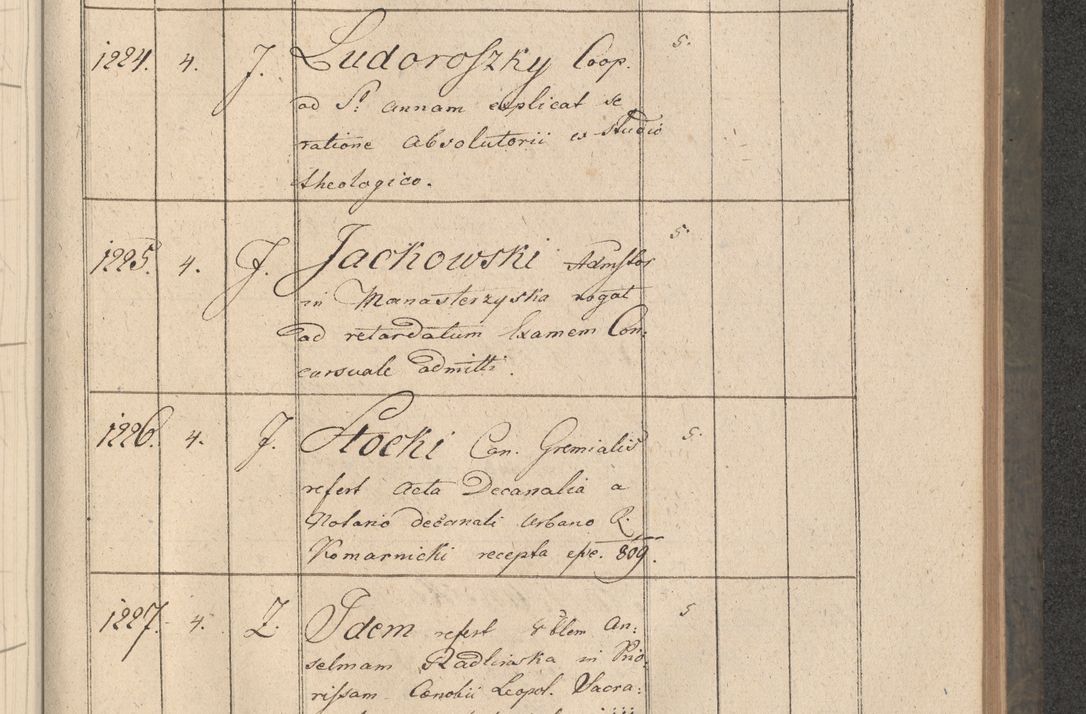 1224. 4. J. Ludoroſzky Coop. 5.
ad S: annam explicat se
ratione absolutorii ex studio
theologico.
1225. 4. J. Jackowski Admstor 5.
in Manasterzyska rogat
ad retardatum Examen Con:
cursuale admitti.
1226. 4. J. Stocki Can. Gremialis 5.
refert Acta Decanalia a
Notario decanali Urbano R.
Komarnicki recepta eſse. 809.
1227. 4. Z. Idem refert An: 5
selmam Radlinska in Prio:
riſsam Cœnobii Leopol. Sacra: